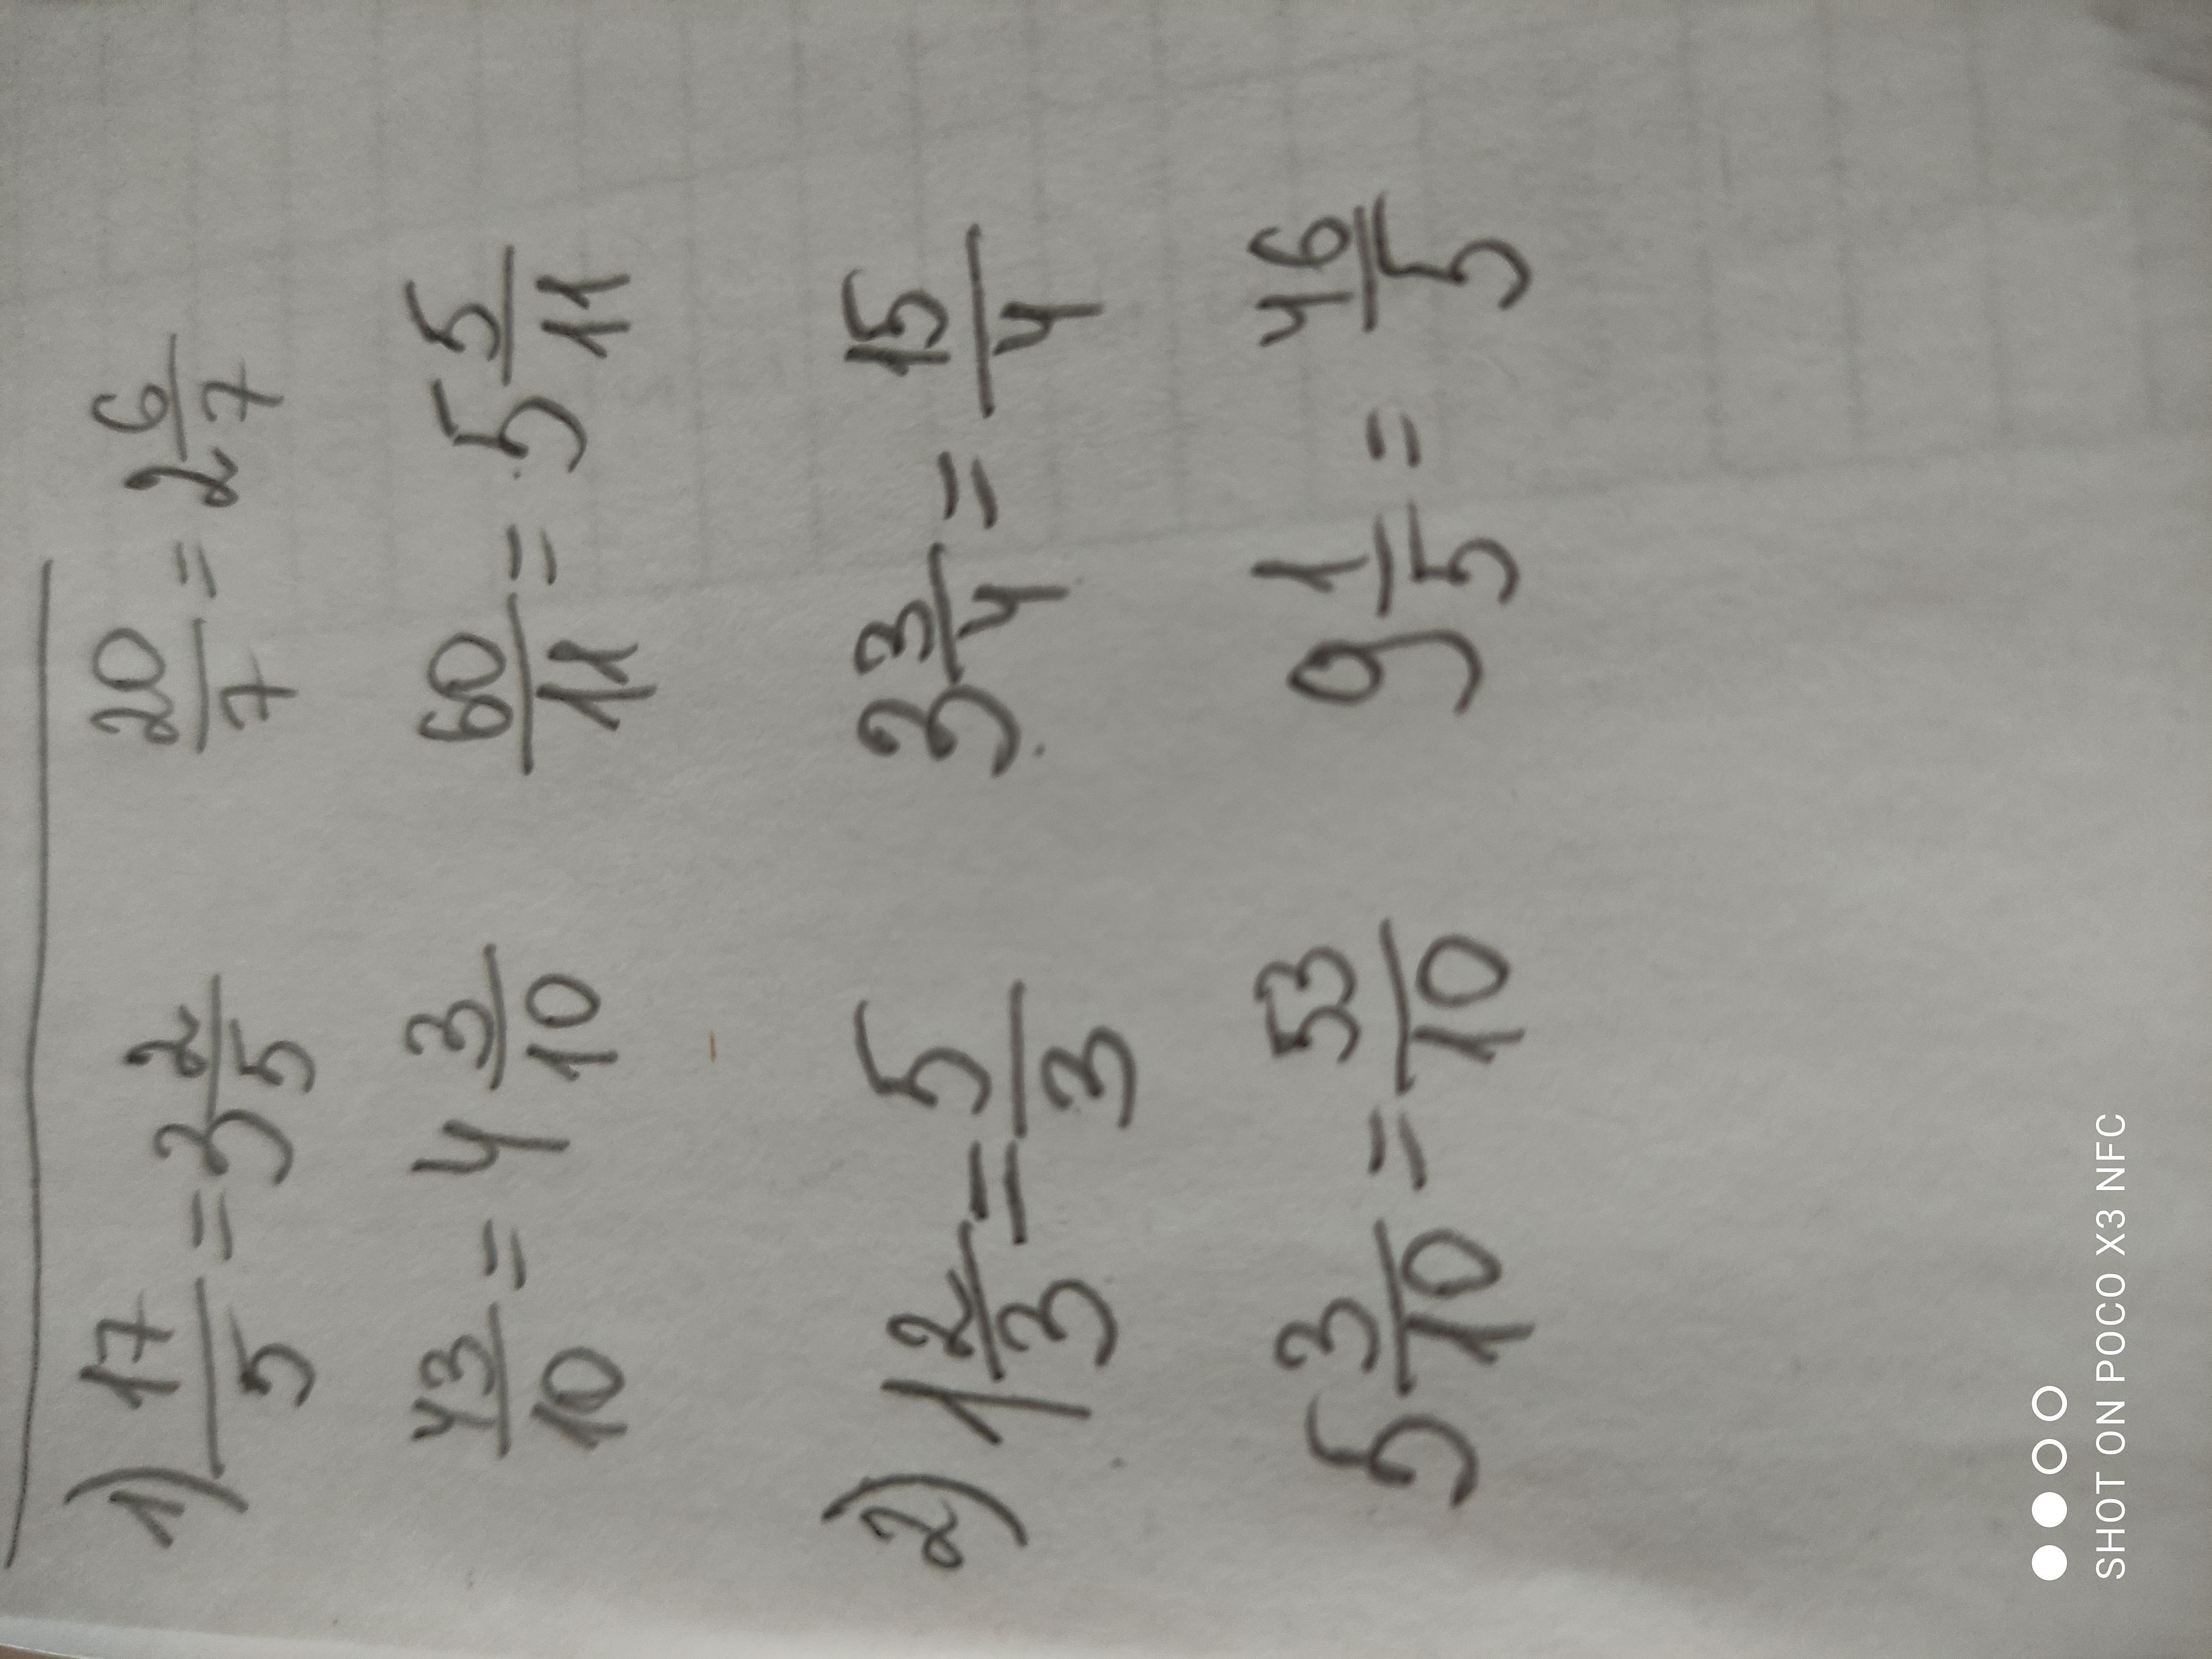 1) 17/5 = 3 2/5   20/7 = 2 6/7
43/10 = 4 3/10   60/11 = 5 5/11
2) 1 2/3 = 5/3   3 3/4 = 15/4
5 3/10 = 53/10   9 1/5 = 46/5
SHOT ON POCO X3 NFC